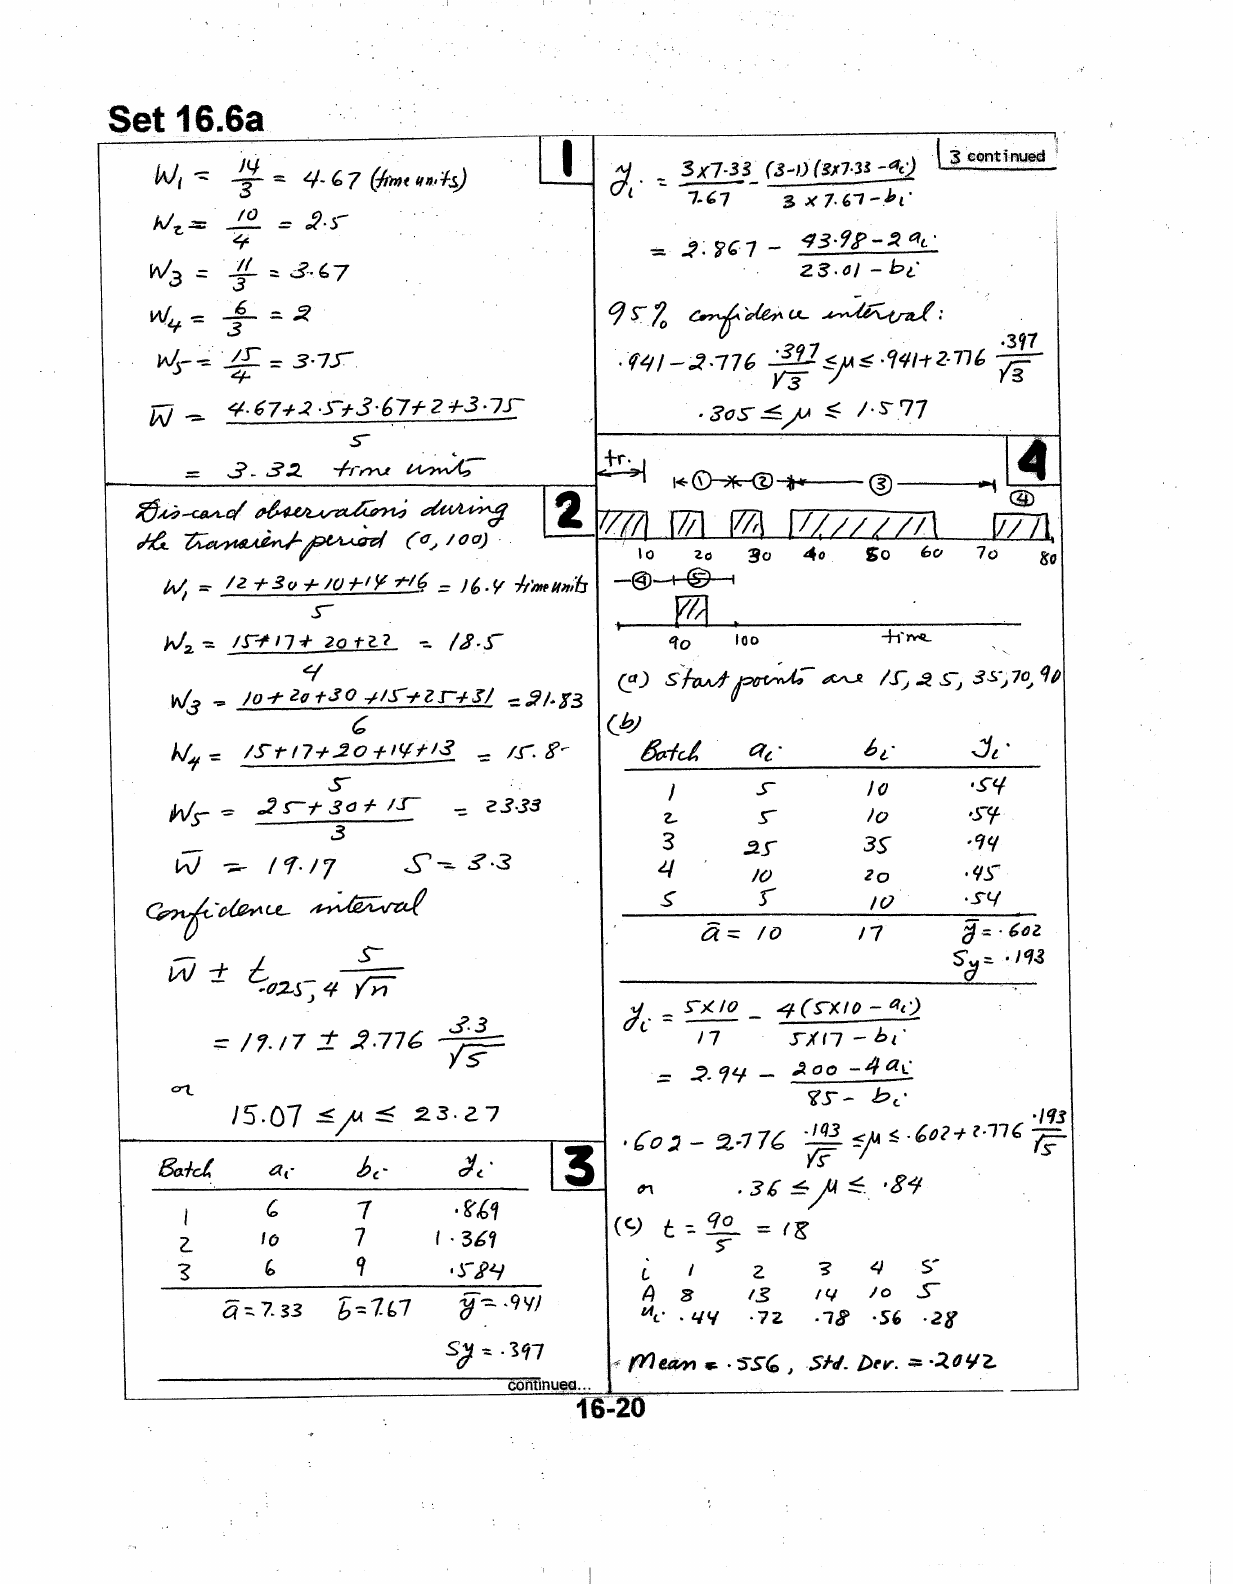 Set 16.6a
1
W₁ = 14/3 = 4.67 (time units)
W₂ = 10/4 = 2.5
W₃ = 11/3 = 3.67
W₄ = 6/3 = 2
W₅ = 15/4 = 3.75
W̄ = (4.67+2.5+3.67+2+3.75)/5
= 3.32 time units
2
Dis-card observations during
the transient period (0, 100)
W₁ = (12+30+10+14+16)/5 = 16.4 time units
W₂ = (15+17+20+22)/4 = 18.5
W₃ = (10+20+30+15+25+31)/6 = 21.83
W₄ = (15+17+20+14+13)/5 = 15.8
W₅ = (25+30+15)/3 = 23.33
W̄ = 19.17 S = 3.3
Confidence interval
W̄ ± t.025,4 S/√n
= 19.17 ± 2.776 3.3/√5
or
15.07 ≤ μ ≤ 23.27
3
Batch aᵢ bᵢ yᵢ
1 6 7 .869
2 10 7 1.369
3 6 9 .584
ā = 7.33 b̄ = 7.67 ȳ = .941
Sy = .397
continued...
3 continued
yᵢ = 3x7.33/7.67 - (3-1)(3x7.33-aᵢ)/(3 x 7.67-bᵢ)
= 2.867 - (43.98-2aᵢ)/(23.01-bᵢ)
95% confidence interval:
.941-2.776 .397/√3 ≤ μ ≤ .941+2.776 .397/√3
.305 ≤ μ ≤ 1.577
4
tr. 1 2 3
4
10 20 30 40 50 60 70 80
4 5
90 100 time
(a) Start points are 15, 25, 35, 70, 90
(b)
Batch aᵢ bᵢ yᵢ
1 5 10 .54
2 5 10 .54
3 25 35 .94
4 10 20 .45
5 5 10 .54
ā = 10 17 ȳ = .602
Sy = .193
yᵢ = 5x10/17 - 4(5x10-aᵢ)/(5x17-bᵢ)
= 2.94 - (200-4aᵢ)/(85-bᵢ)
.602 - 2.776 .193/√5 ≤ μ ≤ .602+2.776 .193/√5
or .36 ≤ μ ≤ .84
(c) t = 90/5 = 18
i 1 2 3 4 5
A 8 13 14 10 5
uᵢ .44 .72 .78 .56 .28
Mean = .556, Std. Dev. = .2042
16-20